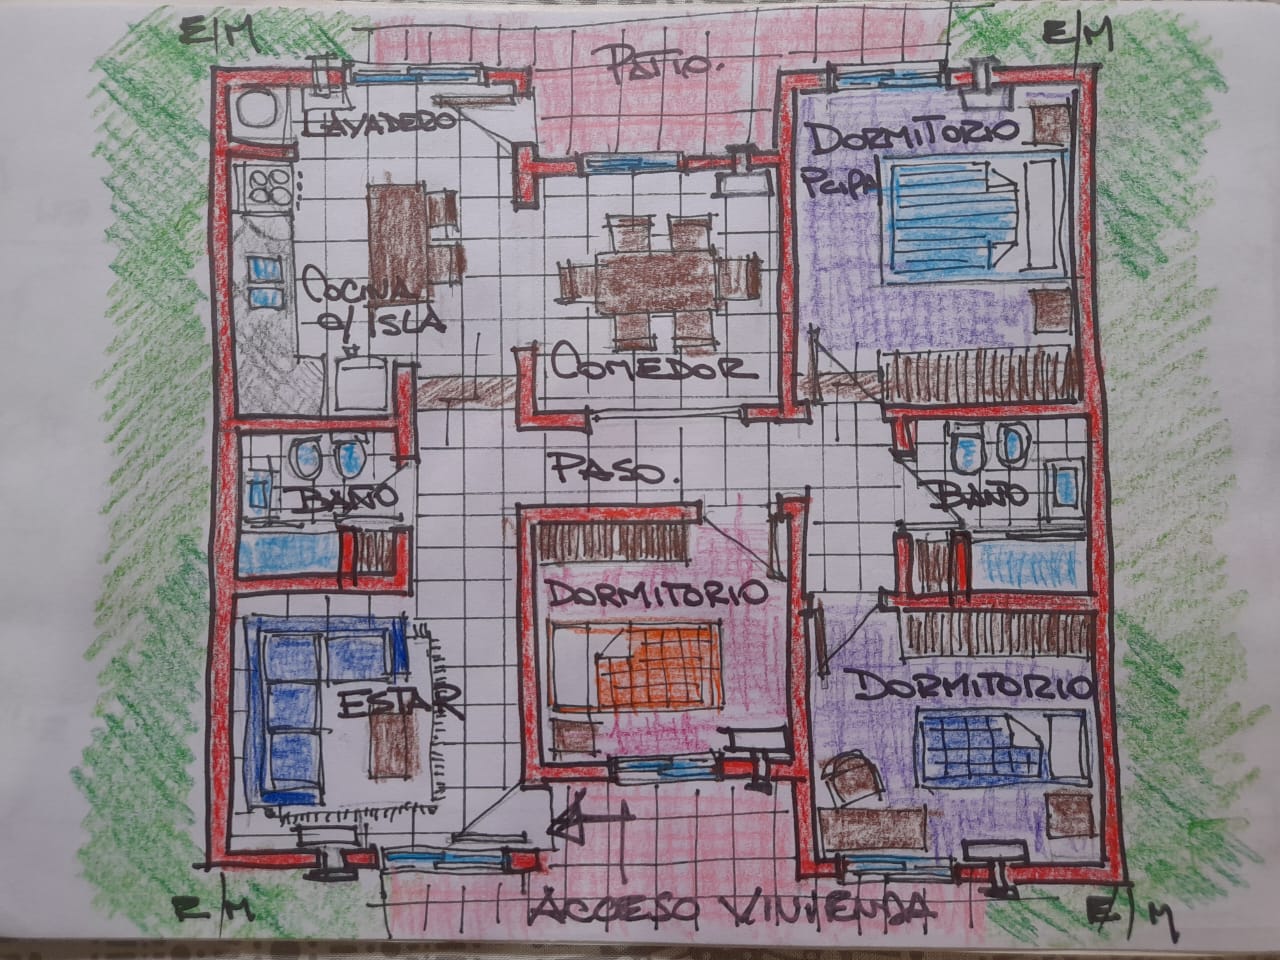 E/M
PATIO.
E/M
LAVADERO
DORMITORIO
PCIPAL
COCINA
C/ ISLA
COMEDOR
BAÑO
PASO.
BAÑO
DORMITORIO
ESTAR
DORMITORIO
E/M
ACCESO VIVIENDA
E/M